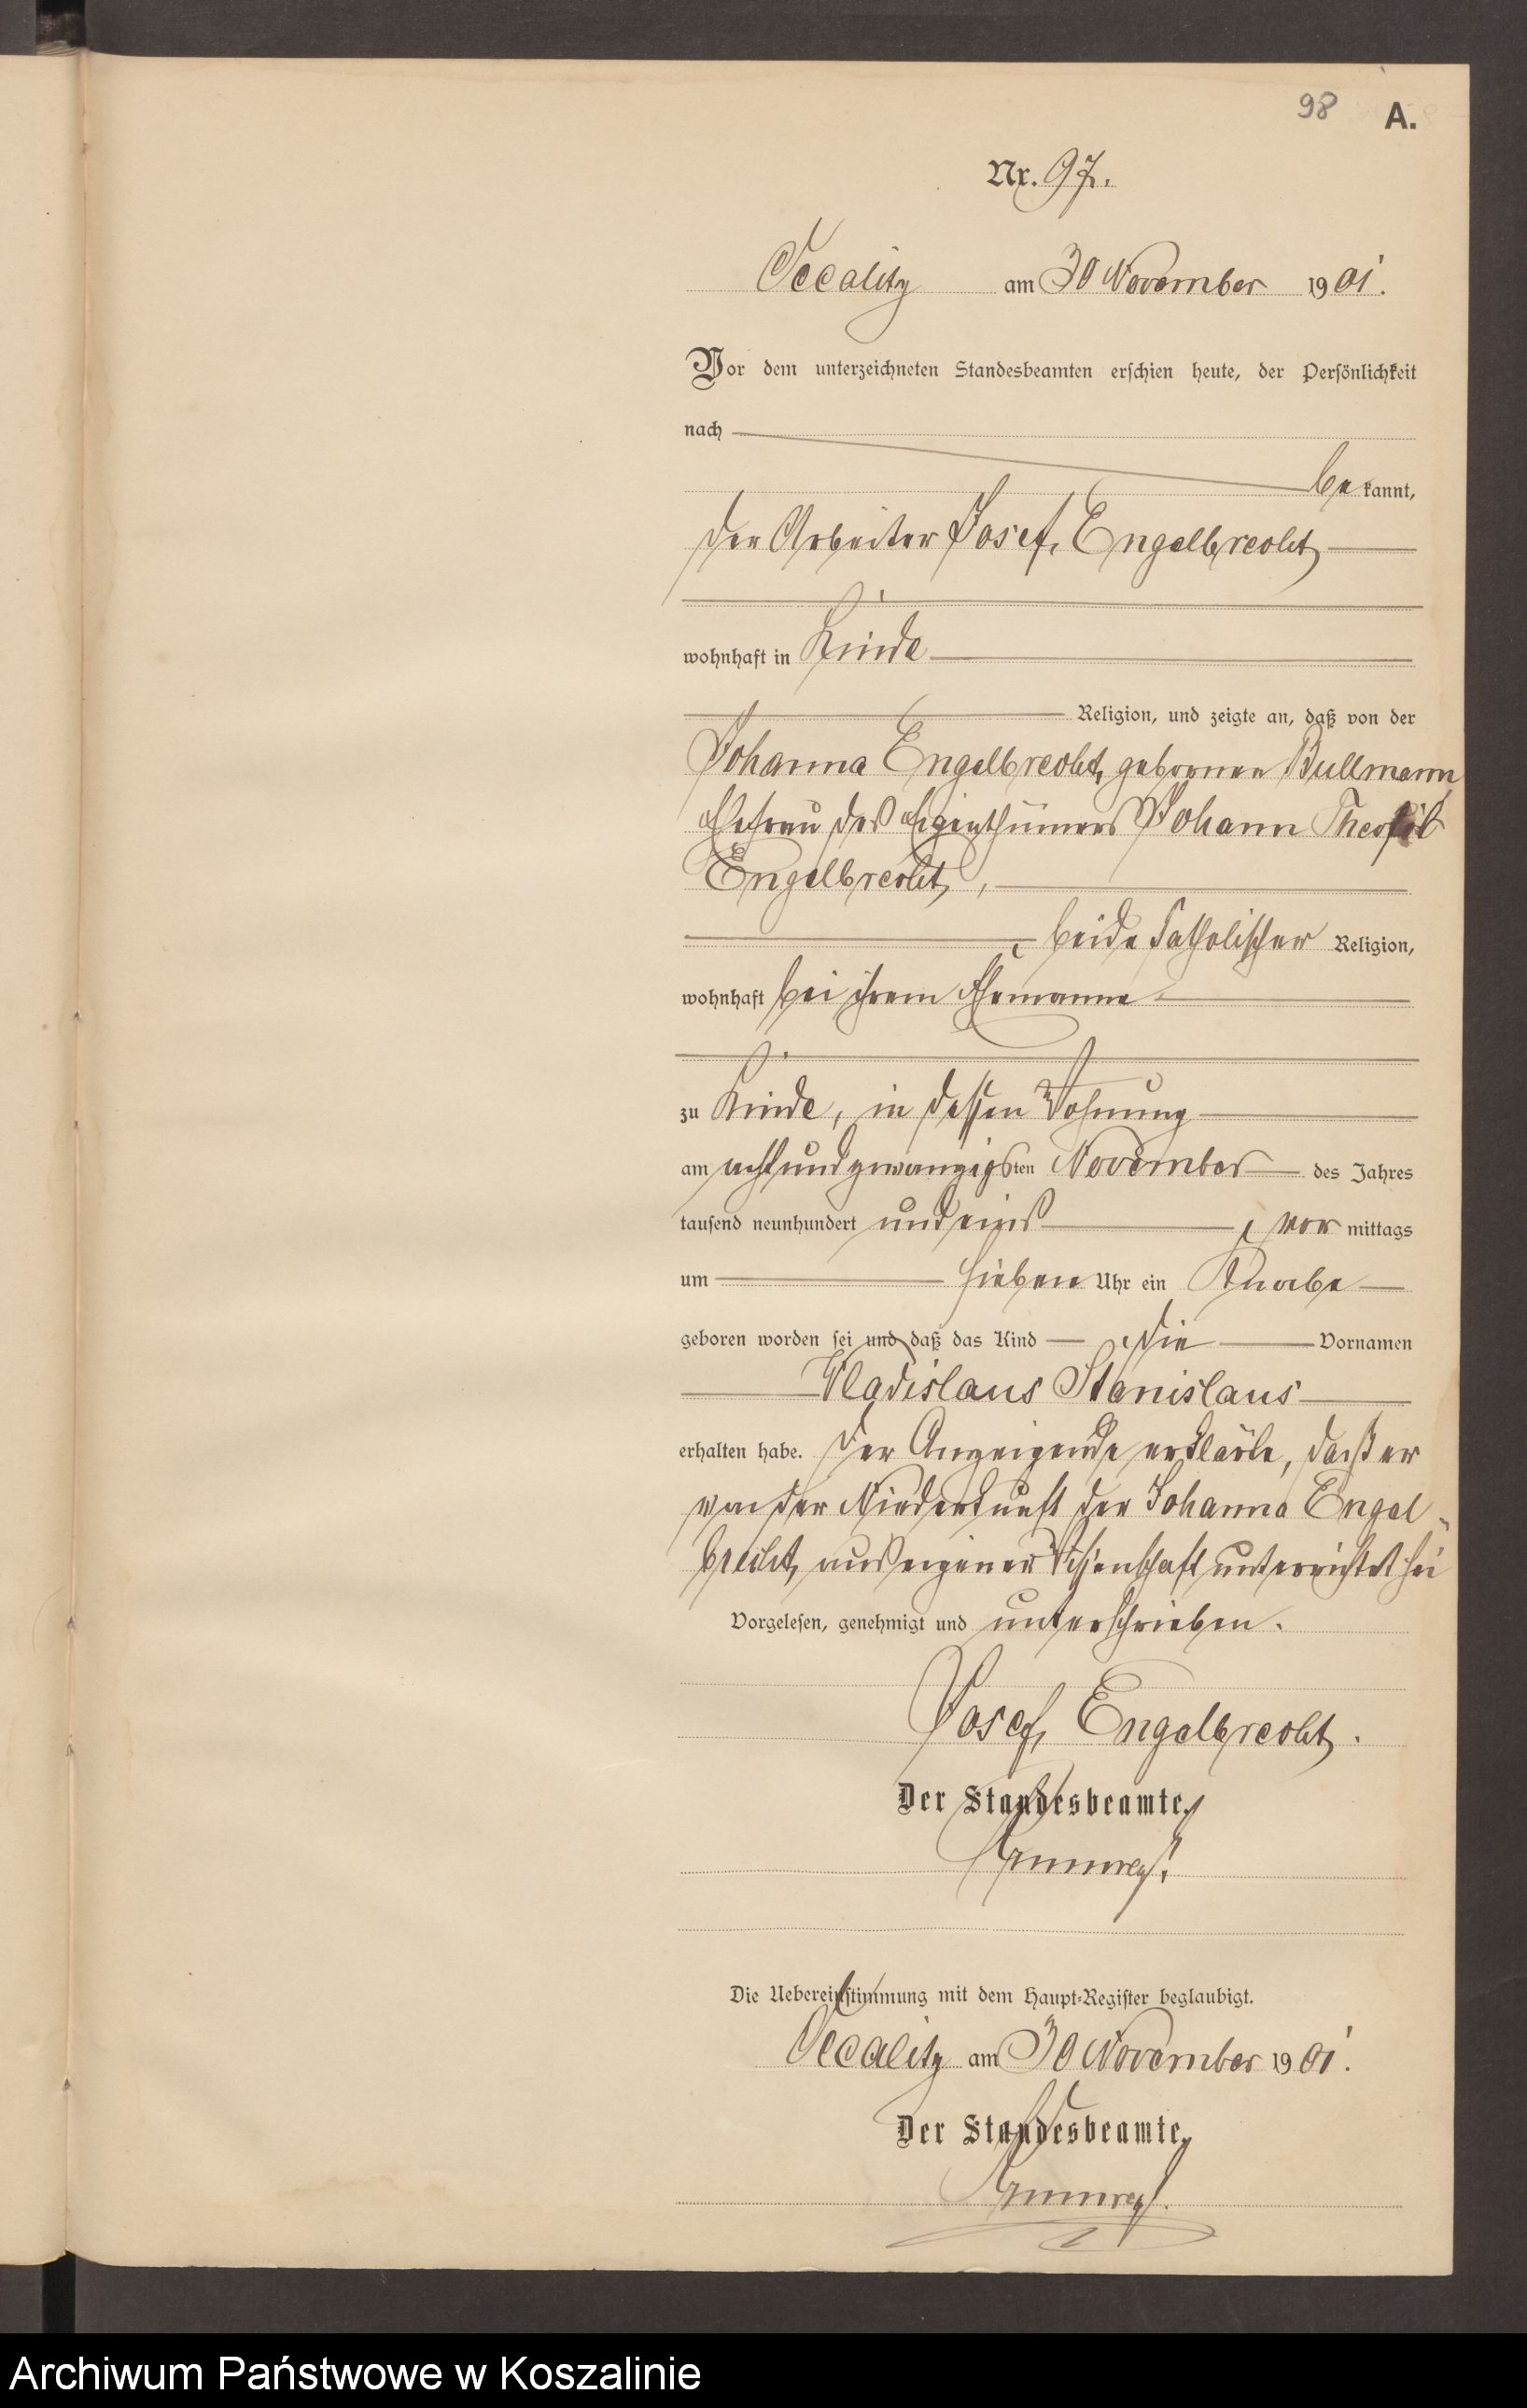 98 A.
Nr. 97.
Oecalitz am 30 November 1901.
Vor dem unterzeichneten Standesbeamten erschien heute, der Persönlichkeit
nach
bekannt,
der Arbeiter Josef Engelbrecht
wohnhaft in
Religion, und zeigte an, daß von der
Johanna Engelbrecht, geborenen Bullmann,
Ehefrau des Eigenthümers Johann Theofil
Engelbrecht,
, beide katholischer Religion,
wohnhaft bei ihrem Ehemanne
zu in dessen Wohnung
am achtundzwanzigsten November des Jahres
tausend neunhundert und eins, vormittags
um sieben Uhr ein Knabe
geboren worden sei und daß das Kind die Vornamen
Wladislaus Stanislaus
erhalten habe. Der Anzeigende erklärte, daß er
von der Niederkunft der Johanna Engel-
brecht, aus eigener Wissenschaft unterrichtet sei
Vorgelesen, genehmigt und unterschrieben.
Josef Engelbrecht.
Der Standesbeamte.
Die Uebereinstimmung mit dem Haupt-Register beglaubigt.
Oecalitz am 30 November 1901.
Der Standesbeamte.
Archiwum Państwowe w Koszalinie